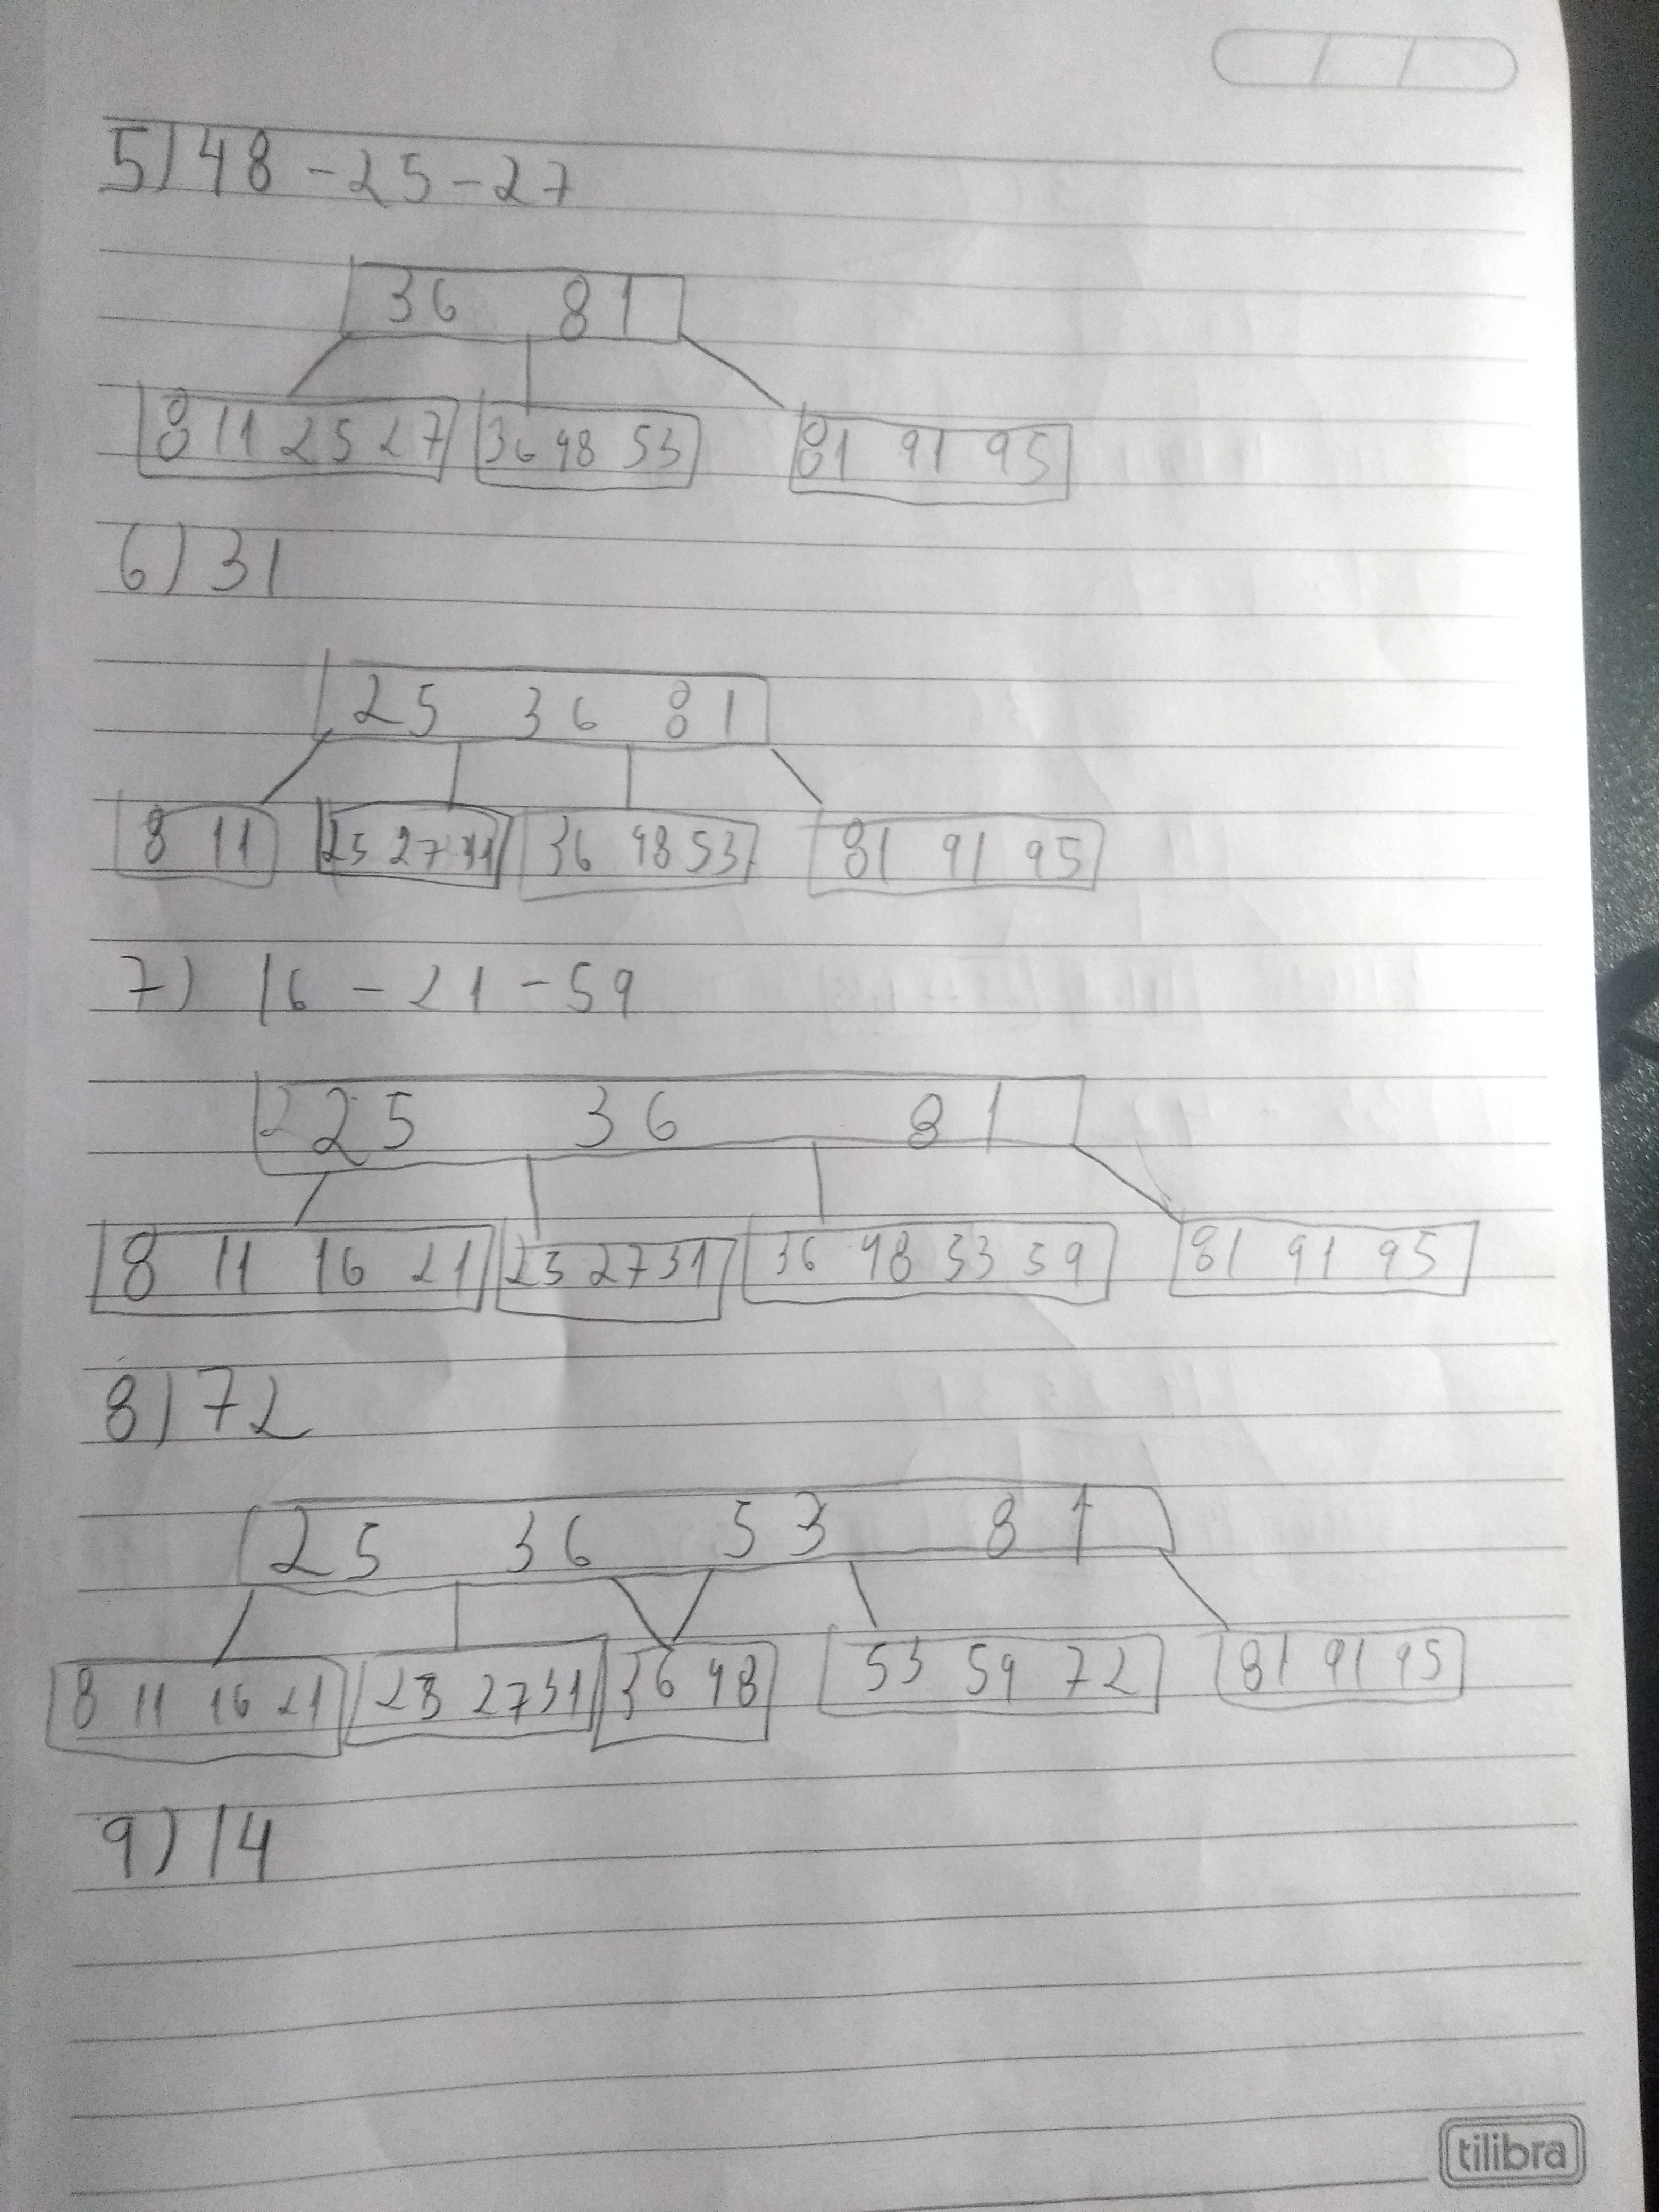 5) 48 - 25 - 27
36 81
8 11 25 27 36 48 53 81 91 95
6) 31
25 36 81
8 11 25 27 31 36 48 53 81 91 95
7) 16 - 21 - 59
25 36 81
8 11 16 21 25 27 31 36 48 53 59 81 91 95
8) 72
25 36 53 81
8 11 16 21 25 27 31 36 48 53 59 72 81 91 95
9) 14
tilibra